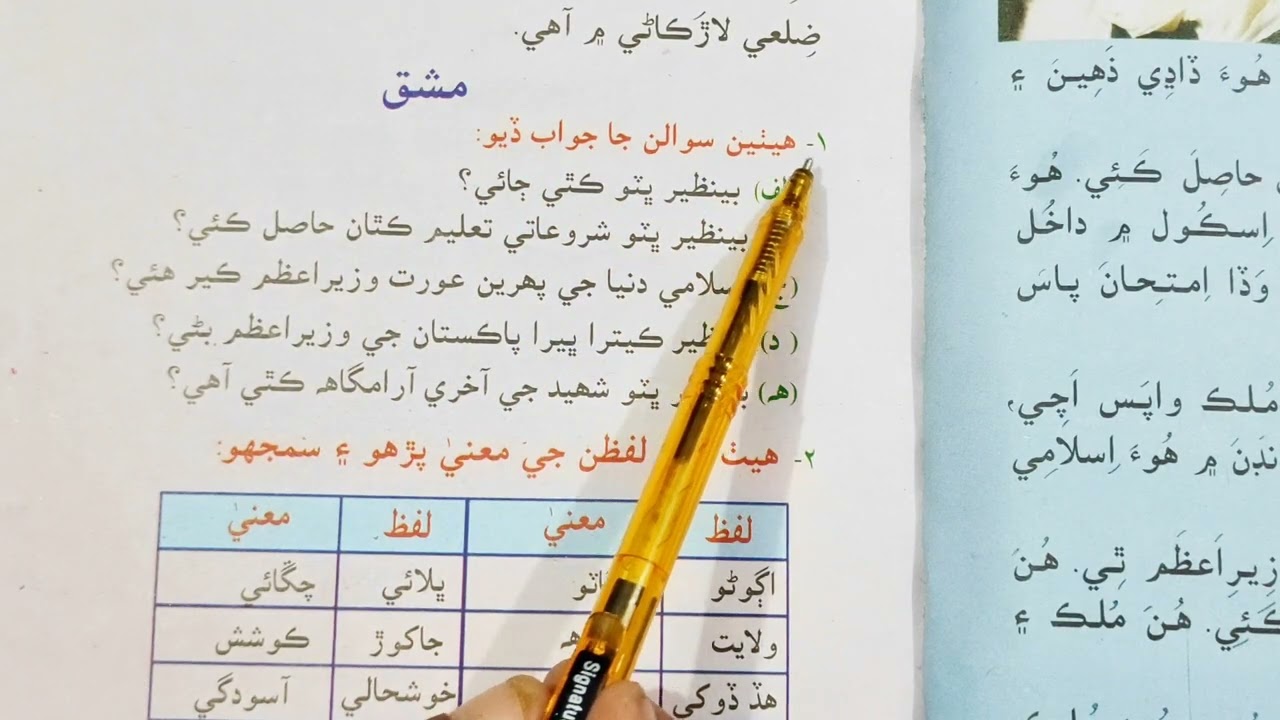 ضِلعي لاڙڪاڻي ۾ آهي.
مشق
١- هيٺين سوالن جا جواب ڏيو:
بينظير ڀٽو ڪٿي ڄائي؟
بينظير ڀٽو شروعاتي تعليم ڪٿان حاصل ڪئي؟
دنيا جي پهرين عورت وزيراعظم ڪير هئي؟
(د) ڪيترا ڀيرا پاڪستان جي وزيراعظم بڻي؟
(هہ) ڀٽو شهيد جي آخري آرامگاهہ ڪٿي آهي؟
٢- لفظن جي معنيٰ پڙهو ۽ سمجهو:
لفظ معنيٰ لفظ معنيٰ
اڳوڻو ڀلائي چڱائي
ولايت جاکوڙ ڪوشش
هڏ ڏوکي خوشحالي آسودگي
هُوءَ ڏاڍِي ذَهِينَ ۽
حاصِلَ ڪَئِي. هُوءَ
اِسڪُول ۾ داخُل
وَڏا اِمتِحانَ پاسَ
مُلڪ واپَس اَچِي،
۾ هُوءَ اِسلامِي
ٿِي. هُنَ
هُنَ مُلڪ ۽
Signatu